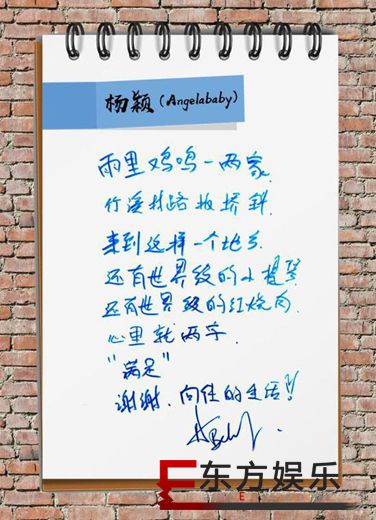 杨颖（Angelababy）
雨里鸡鸣一两家
竹溪村路板桥斜.
来到这样一个地方
还有世界级的小提琴
还有世界级的红烧肉.
心里就两字
“满足”
谢谢.向往的生活!!
东方娱乐